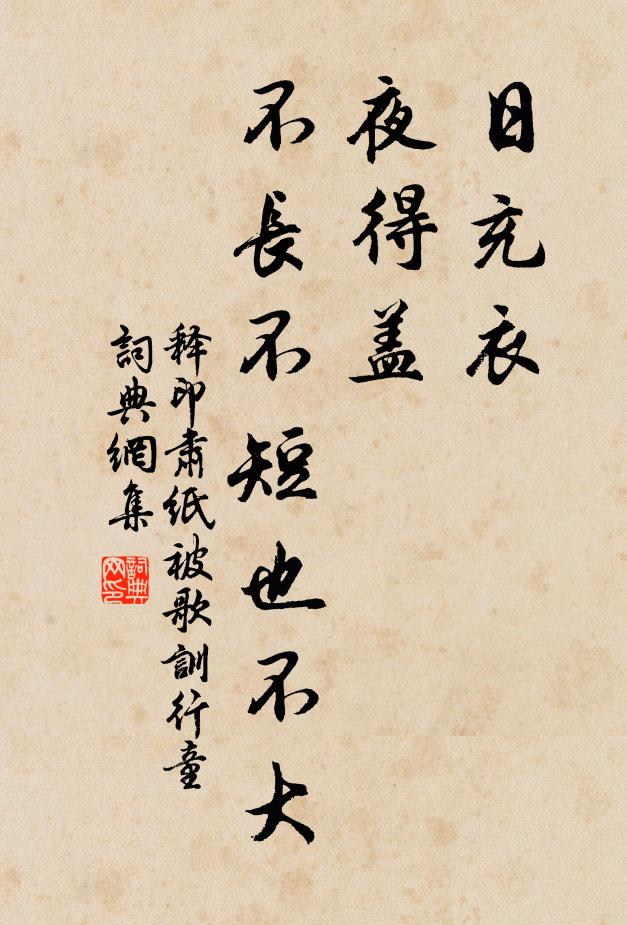 日充衣
夜得盖
不長不短也不大
释印肅紙被歌訓行童
詞典網集
詞典网印